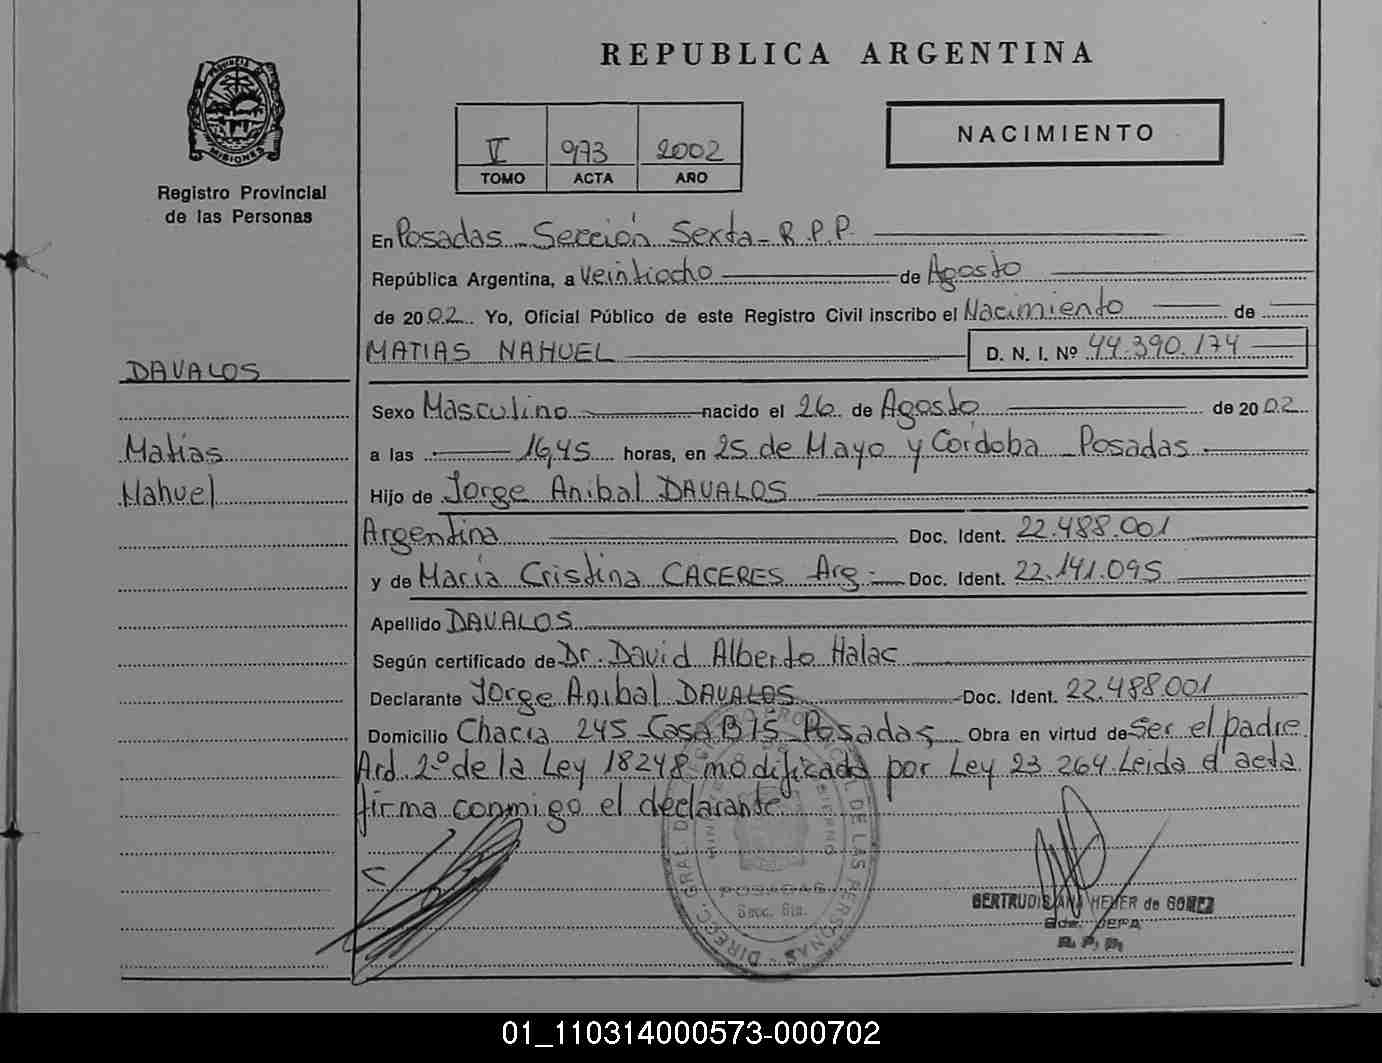 REPUBLICA ARGENTINA
PROVINCIA DE MISIONES
Registro Provincial
de las Personas
V 973 2002
TOMO ACTA AÑO
NACIMIENTO
En Posadas - Sección Sexta - R.P.P.
República Argentina, a Veintiocho de Agosto
de 2002 Yo, Oficial Público de este Registro Civil inscribo el Nacimiento de
MATIAS NAHUEL D. N. I. Nº 44.390.174
DAVALOS
Matías
Nahuel
Sexo Masculino nacido el 26 de Agosto de 2002
a las 16,45 horas, en 25 de Mayo y Córdoba - Posadas
Hijo de Jorge Anibal DAVALOS
Argentina Doc. Ident. 22.488.001
y de María Cristina CACERES Arg. Doc. Ident. 22.141.095
Apellido DAVALOS
Según certificado de Dr. David Alberto Halac
Declarante Jorge Anibal DAVALOS Doc. Ident. 22.488.001
Domicilio Chacra 245 Casa B75 Posadas Obra en virtud de Ser el padre
Art 2º de la Ley 18248 modificada por Ley 23 264 Leida el acta
firma conmigo el declarante
DIREC. GRAL. DE LAS PERSONAS
POSADAS
Secc. 6ta.
GERTRUDIS ANA HEYER de GOMEZ
JEFA
R. P. P.
01_110314000573-000702